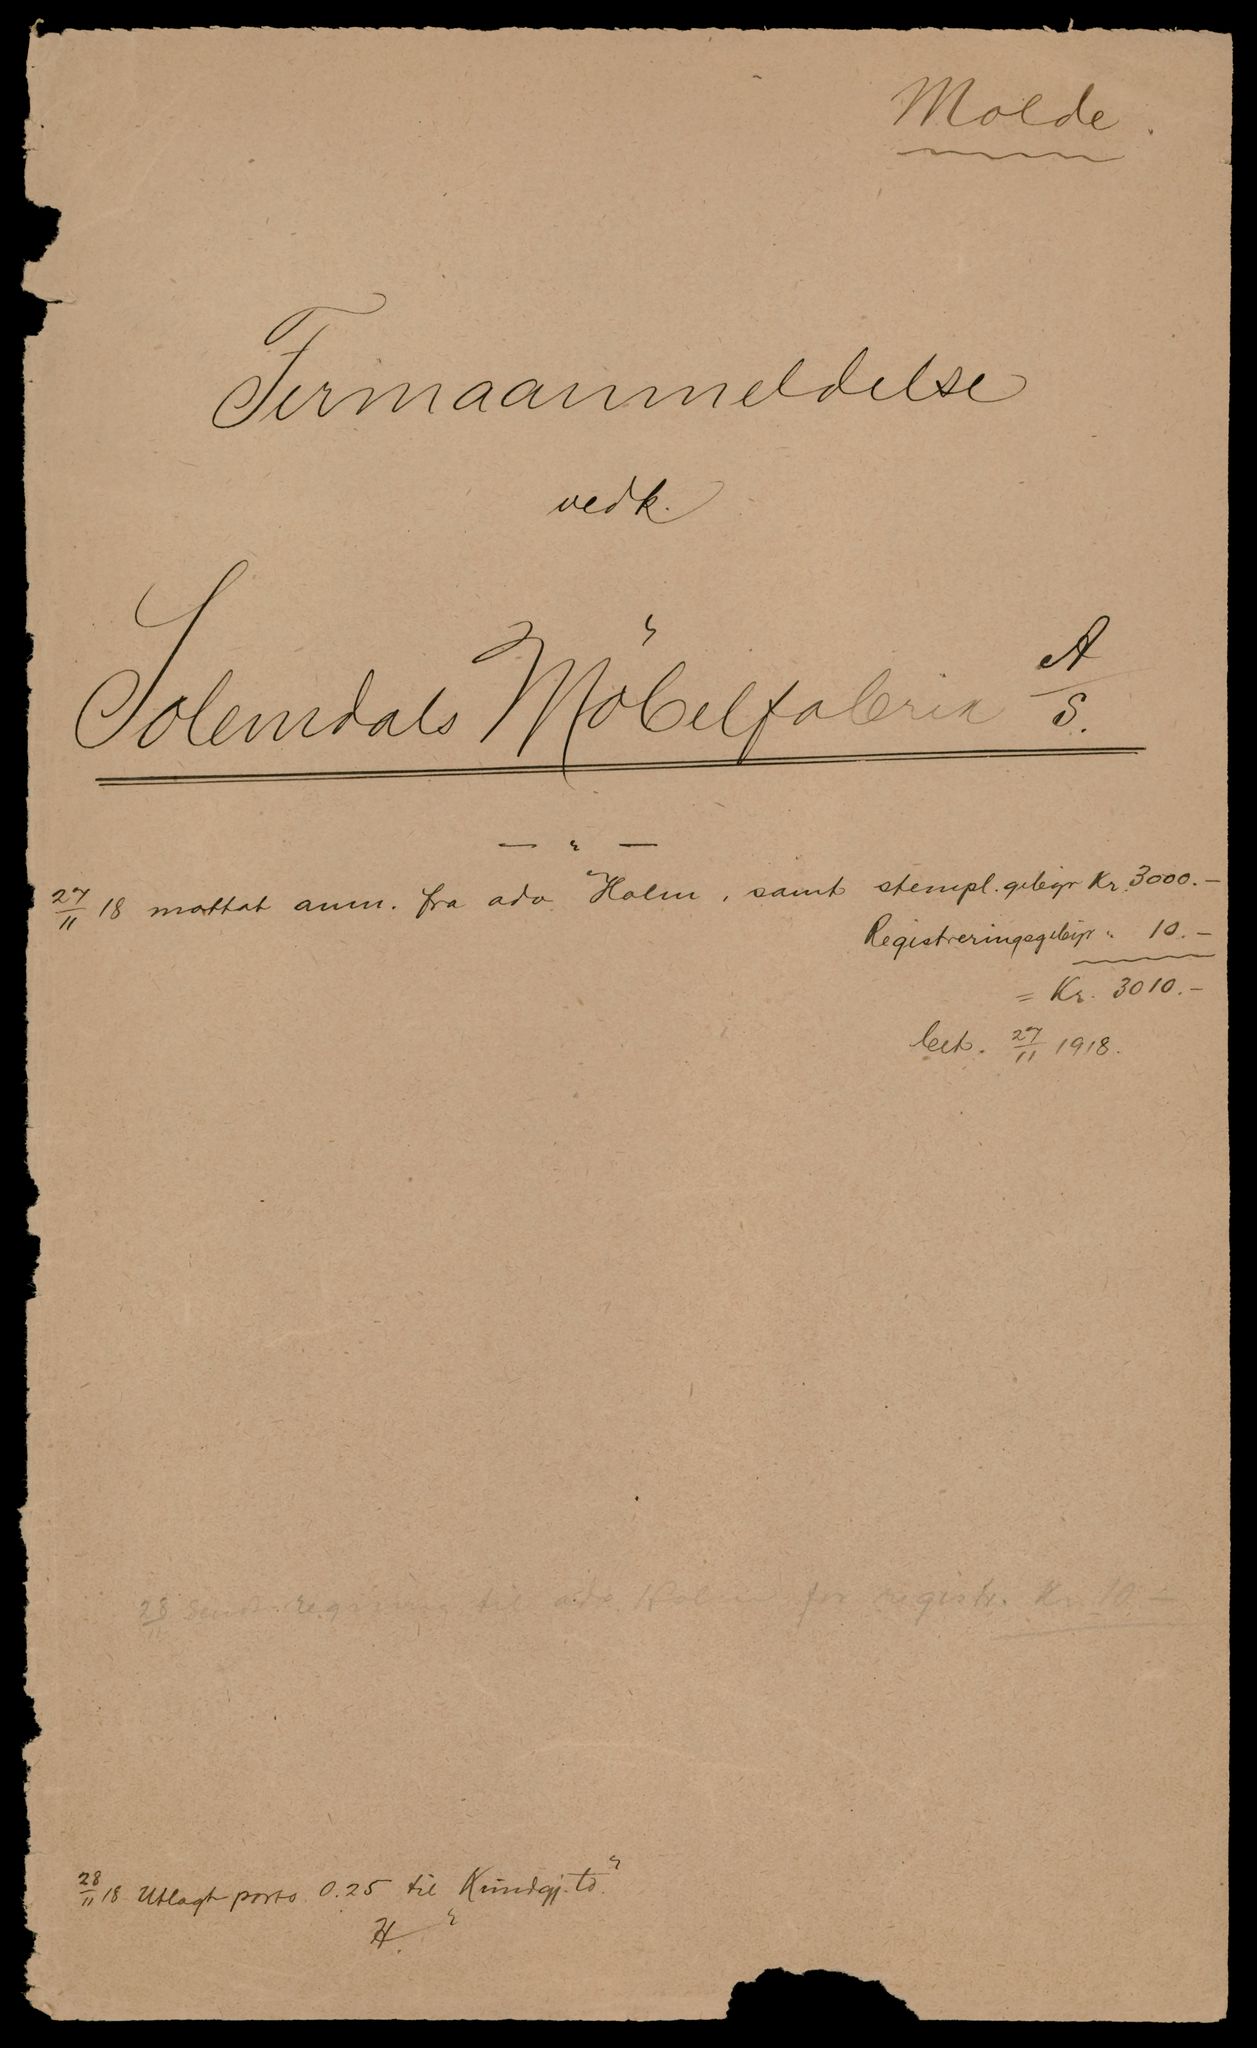 Molde.
Firmaanmeldelse
vedk.
Solemdals Möbelfabrik A/S.
— " —
27/11 18 mottat anm. fra adv. Holm, samt stempl.gebyr Kr. 3000.-
Registreringsgebyr " 10.-
= Kr. 3010.-
bet. 27/11 1918.
28/11 Sendt regning til adv. Holm for registr. Kr. 10.-
28/11 18 Utlagt porto 0.25 til Kundgj.td.
H.